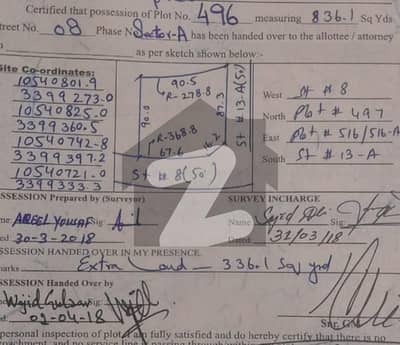 Certified that possession of Plot No. 496 measuring 836.1 Sq Yds
treet No. 08 Phase Sector-A has been handed over to the allottee / attorney
as per sketch shown below:-
Site Co-ordinates:
10540801.9
3399273.0
10540825.0
3399360.5
10540742.8
3399397.2
10540721.0
3399333.3
90.5
R-278.8
90.0
87.3
R-368.8
67.6
St # 13-A(50)
St # 8(50)
West St # 8
North Plot # 497
East Plot # 516/516-A
South St # 13-A
SSESSION Prepared by (Surveyor)
SURVEY INCHARGE
me: Sig:
Name Sig:
ed 30-3-2018
Dated 31/03/18
SESSION HANDED OVER IN MY PRESENCE.
marks Extra Land - 336.1 Sq yrd
SSESSION Handed Over by
Wajid Sig:
02-04-18
personal inspection of plot I am fully satisfied and do hereby certify that there is no